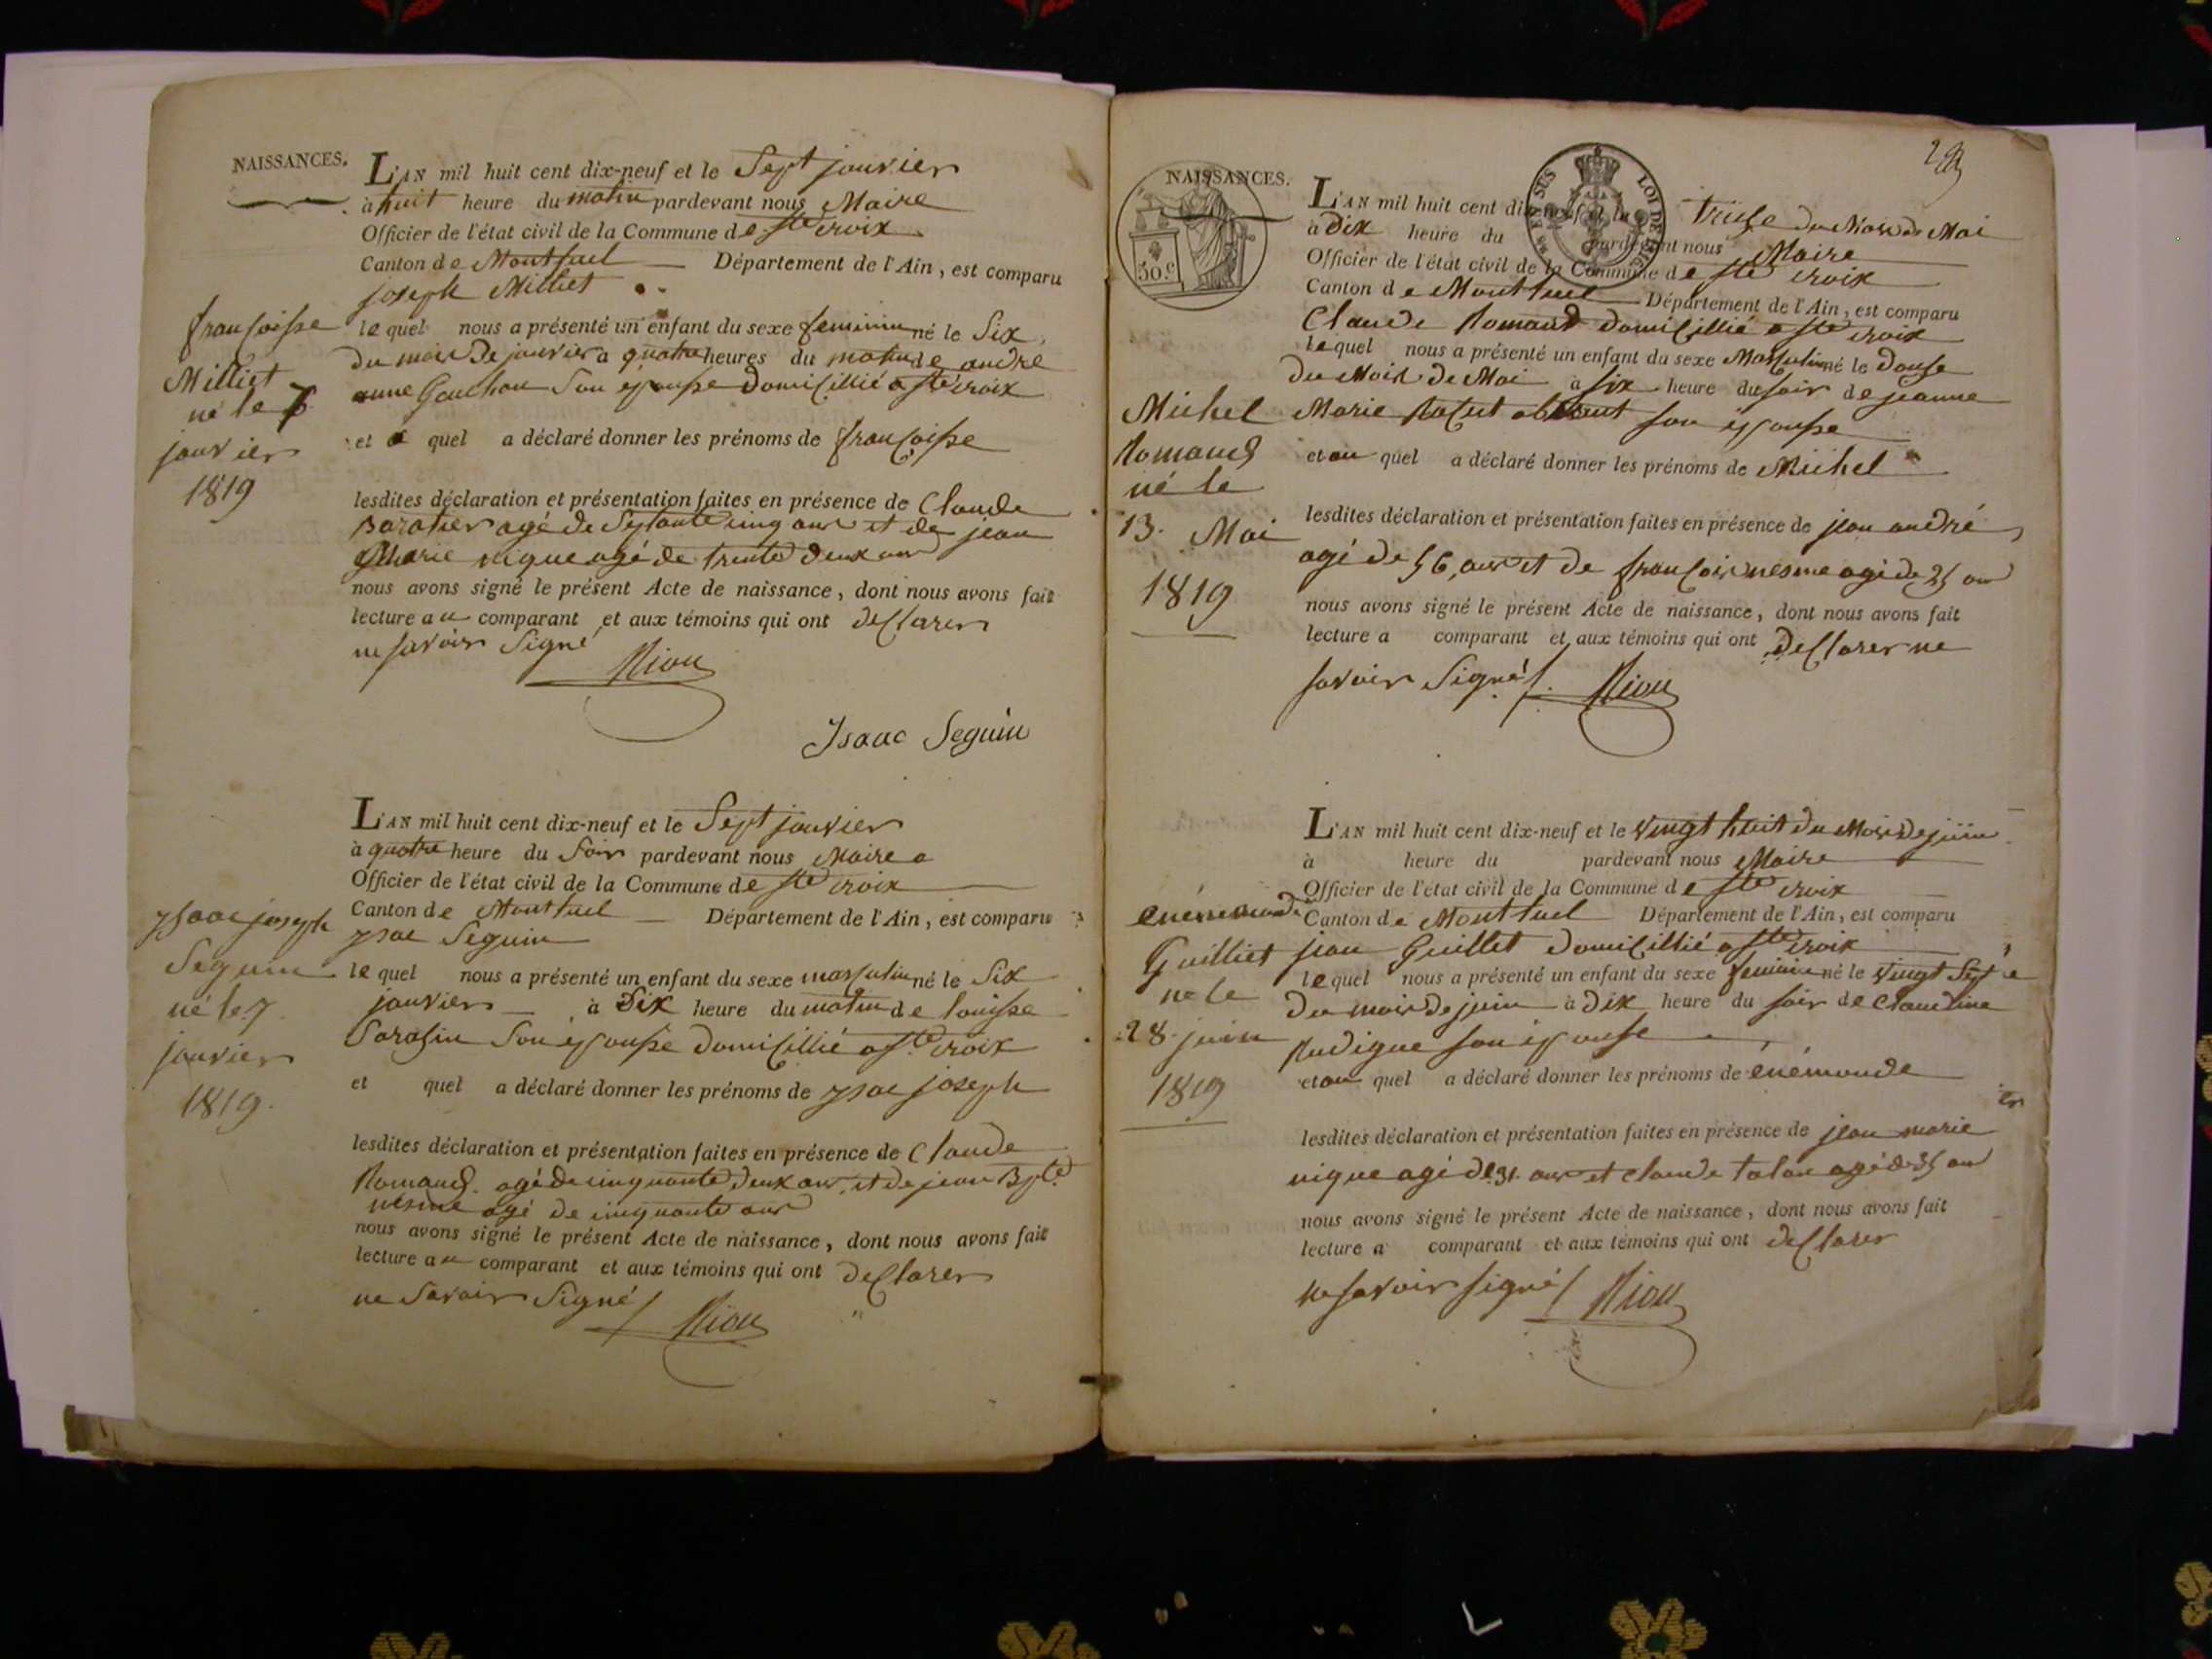 NAISSANCES.
L'AN mil huit cent dix-neuf et le Sept janvier
à huit heure du matin pardevant nous Maire
Officier de l'état civil de la Commune de Ste croix
Canton de Montluel Département de l'Ain, est comparu
joseph Milliet
le quel nous a présenté un enfant du sexe feminin né le Six
du mois De janvier a quatre heures du matin de andre
anne Gouchon Son epousse Domicillié a Ste croix
et a quel a déclaré donner les prénoms de françoisse
lesdites déclaration et présentation faites en présence de Claude
Baratier agé de Septante cinq ans et de jean
Marie nique agé de trente Deux ans
nous avons signé le présent Acte de naissance, dont nous avons fait
lecture au comparant et aux témoins qui ont declarer
ne savoir Signé
Riou
Isaac Seguin
françoisse
Milliet
né le 7
janvier
1819
L'AN mil huit cent dix-neuf et le Sept janvier
à quatre heure du Soir pardevant nous Maire a
Officier de l'état civil de la Commune de Ste croix
Canton de Montluel Département de l'Ain, est comparu
ysac Seguin
le quel nous a présenté un enfant du sexe masculin né le Six
janvier à Dix heure du matin de louisse
Sarasin Son epousse Domicillié a Ste croix
et quel a déclaré donner les prénoms de ysac joseph
lesdites déclaration et présentation faites en présence de Claude
Romand agé de cinquante Deux ans et de jean Bpte
nesme agé de cinquante ans
nous avons signé le présent Acte de naissance, dont nous avons fait
lecture au comparant et aux témoins qui ont declarer
ne Savoir Signé
Riou
ysaac joseph
Seguin
né le 7
janvier
1819.
NAISSANCES.
50 c
L'AN mil huit cent dix-neuf et le treisse du Mois de Mai
à Dix heure du pardevant nous Maire
Officier de l'état civil de la Commune de Ste croix
Canton de Montluel Département de l'Ain, est comparu
Claude Romand domicillié a Ste croix
le quel nous a présenté un enfant du sexe Masculin né le Douse
du Mois de Mai à six heure du soir de jeanne
Marie son epousse
et au quel a déclaré donner les prénoms de Michel
lesdites déclaration et présentation faites en présence de jean andré
agé de 56 ans et de françois nesme agé de 25 ans
nous avons signé le présent Acte de naissance, dont nous avons fait
lecture a comparant et aux témoins qui ont declarer ne
savoir Signé
Riou
Michel
Romand
né le
13. Mai
1819
L'AN mil huit cent dix-neuf et le vingt huit du Mois de juin
à heure du pardevant nous Maire
Officier de l'état civil de la Commune de Ste croix
Canton de Montluel Département de l'Ain, est comparu
jean Guillet domicillié a Ste croix
le quel nous a présenté un enfant du sexe feminin né le vingt Sept
du mois de juin à dix heure du soir de Claudine
Rudigue son epousse
et au quel a déclaré donner les prénoms de énémonde
lesdites déclaration et présentation faites en présence de jean marie
nique agé de 31 ans et claude talon agé de 35 ans
nous avons signé le présent Acte de naissance, dont nous avons fait
lecture a comparant et aux témoins qui ont declarer
ne savoir signé
Riou
Guilliet
né le
28. juin
1819